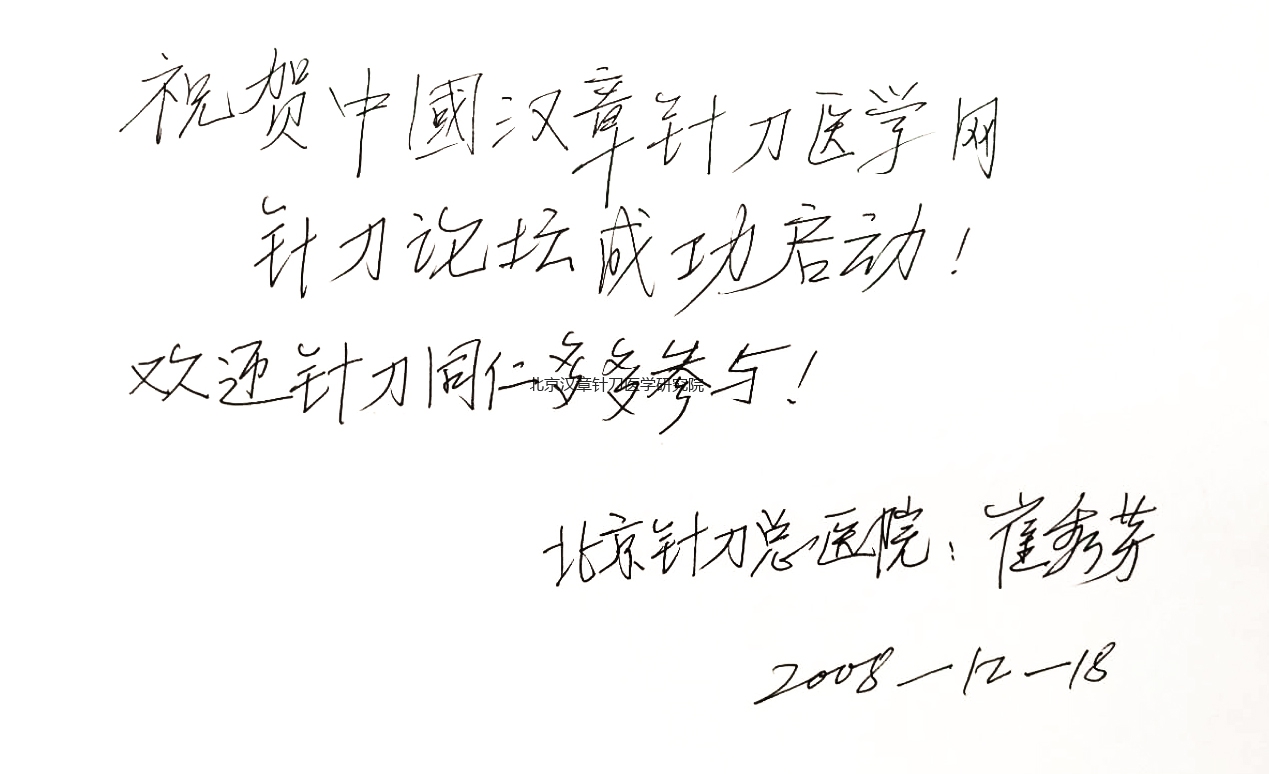 祝贺中國汉章针刀医学网
针刀论坛成功启动！
欢迎针刀同仁多多参与！
北京汉章针刀医学研究院
北京针刀总医院：崔秀芳
2008-12-18